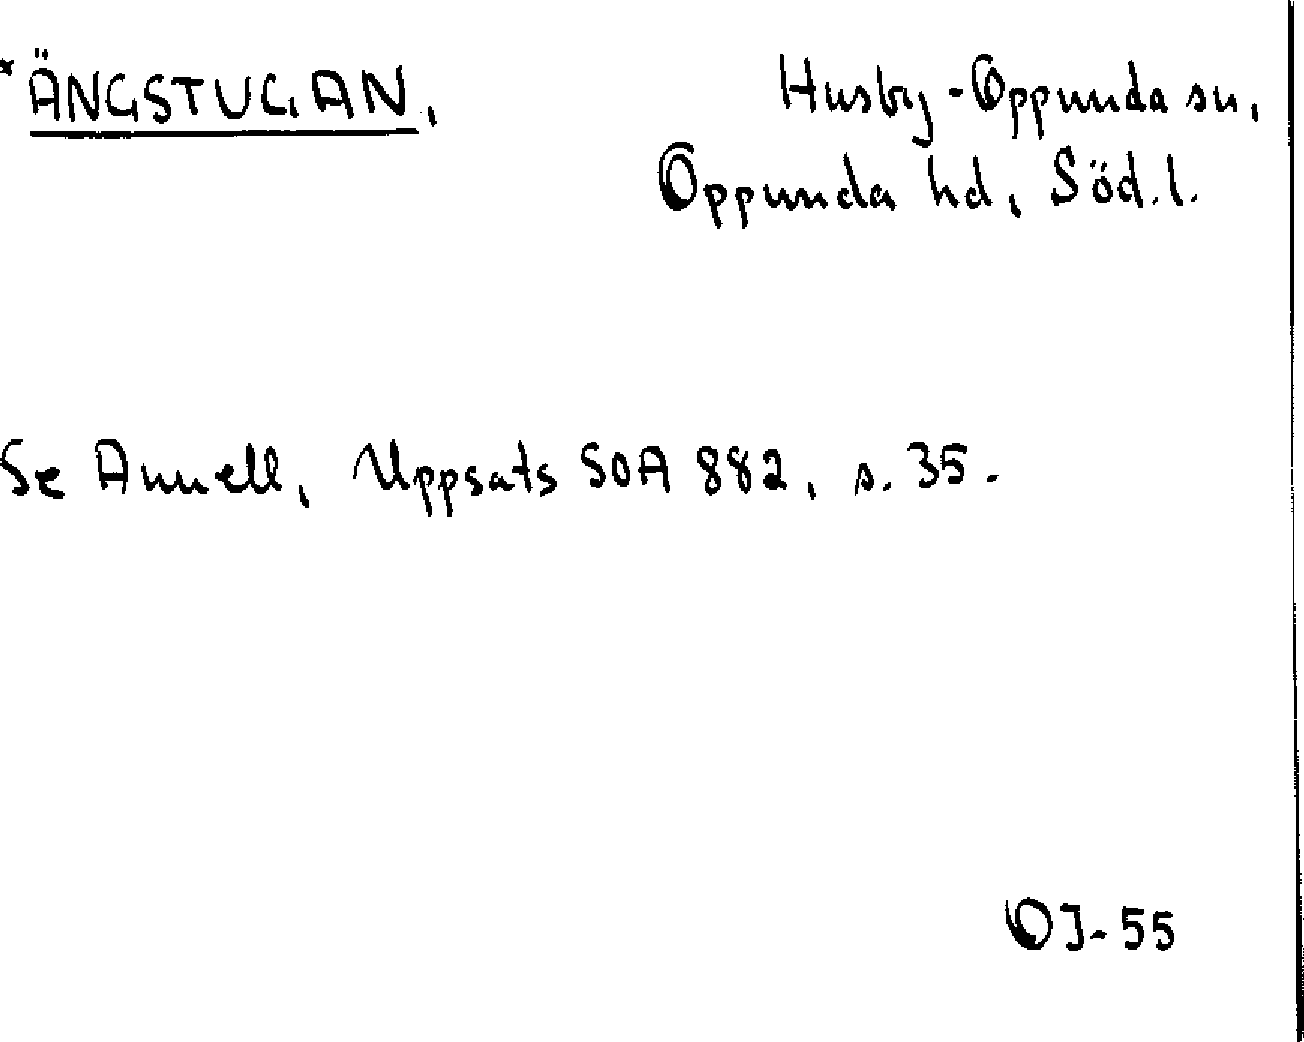 *ÄNGSTUGAN, Husby-Oppunda sn,
Oppunda hd, Söd.l.
Se Annell, Uppsats SOA 882, s. 35.
OJ-55